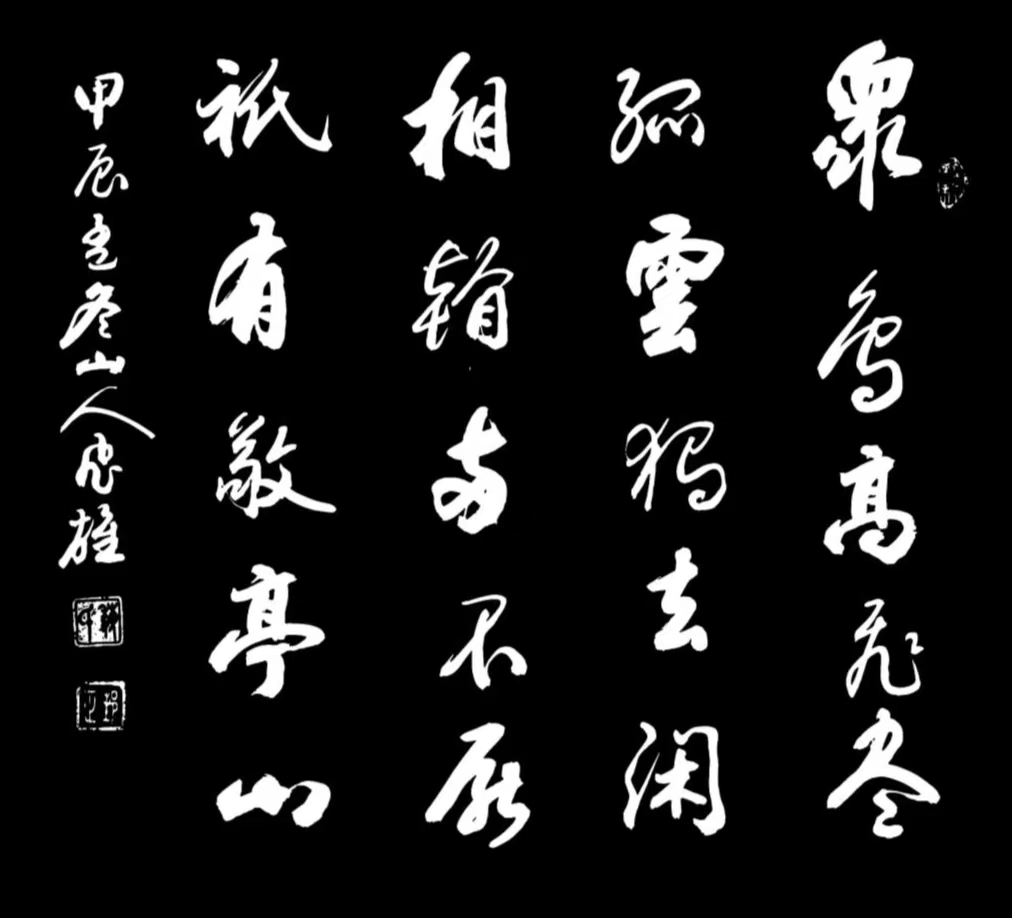 衆鳥高飛盡
孤雲獨去閑
相看兩不厭
祇有敬亭山
甲辰冬山人雄